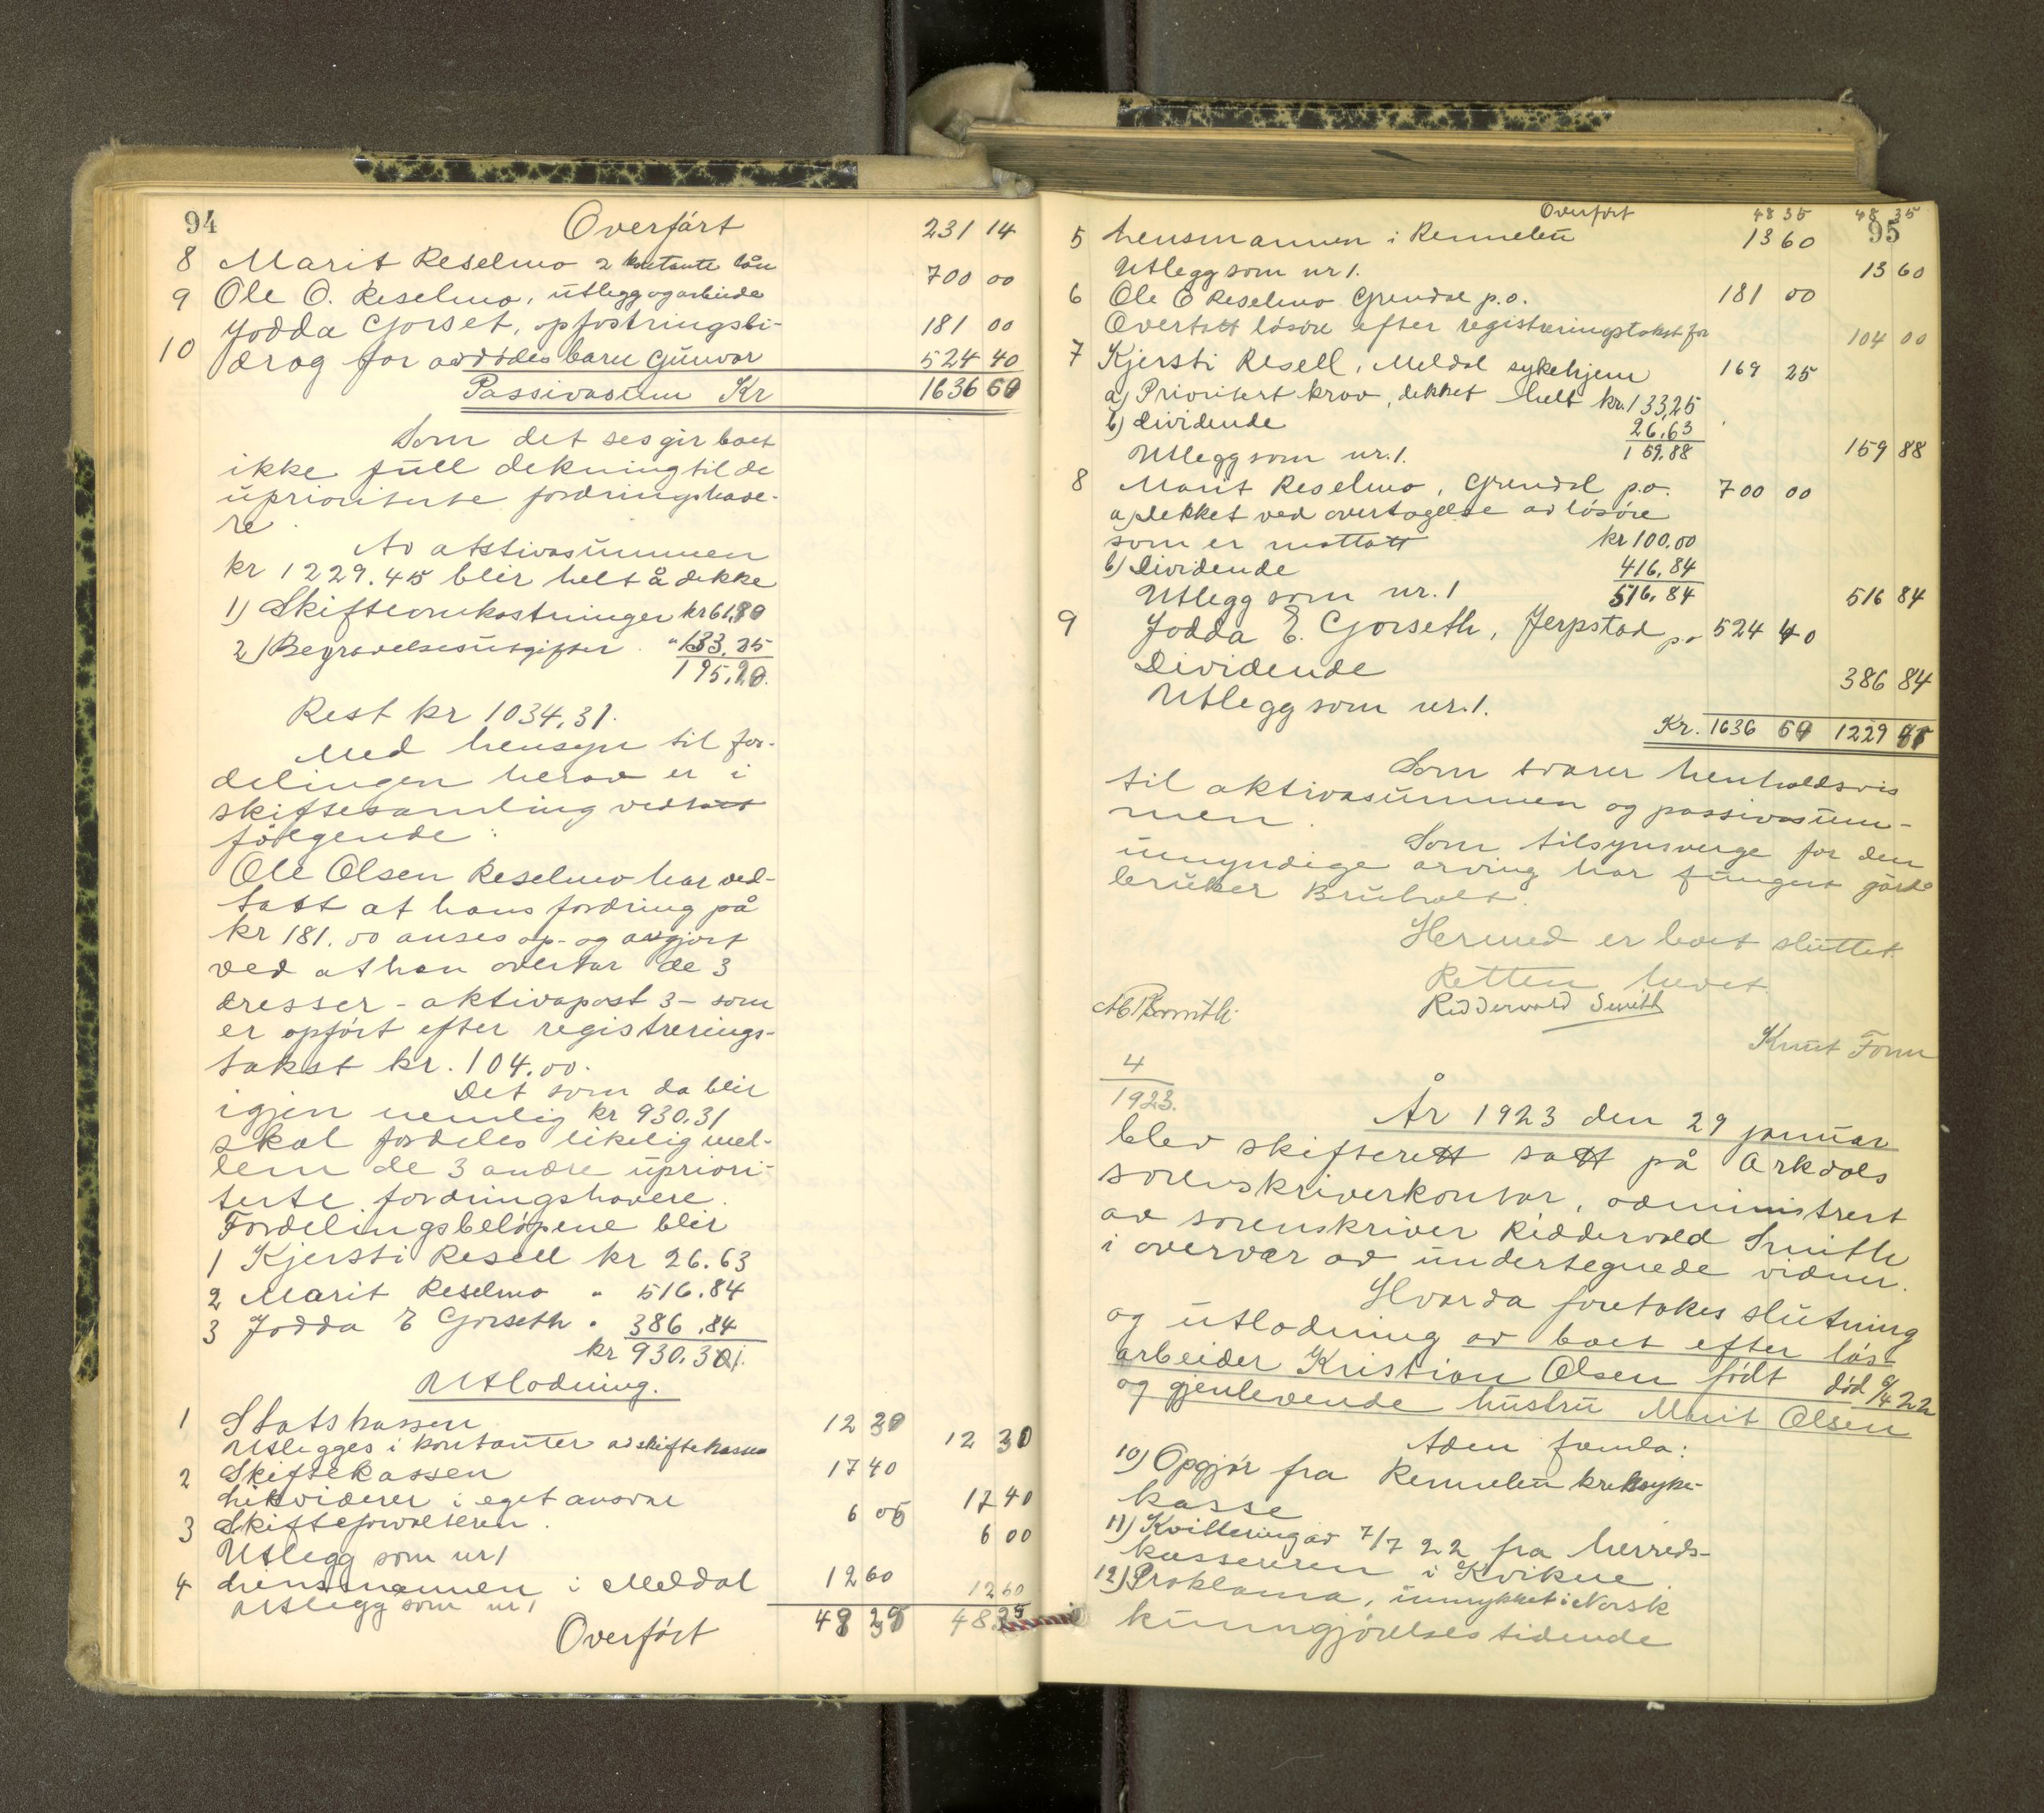 94
Overført 231 14
8 Marit Reselmo 2 kontante lån 700 00
9 Ole O. Reselmo, utlegg og arbeide 181 00
10 Jodda Gorset, opfostringsbi-
drag for avdødes barn Gunvor 524 40
Passivasum Kr 1636
Som det ses gir boet
ikke full dekning til de
uprioriterte fordringshave-
re.
Av aktivasummen
kr 1229.45 blir helt å dekke
1) Skifteomkostninger kr 61,
2) Begravelsesutgifter " 133.25
195.
Rest kr 1034,31.
Med hensyn til for-
delingen herav er i
skiftesamling vedtatt
følgende:
Ole Olsen Reselmo har ved-
tatt at hans fordring på
kr 181.00 anses op- og avgjort
ved at han overtar de 3
dresser - aktivapost 3 - som
er opført efter registrerings-
takst kr. 104.00.
Det som da blir
igjen nemlig kr 930.31
skal fordeles likelig mel-
lem de 3 andre upriori-
terte fordringshavere.
Fordelingsbeløpene blir
1 Kjersti Resell kr 26.63
2 Marit Reselmo " 516.84
3 Jodda E Gorseth " 386.84
kr 930.31.
Utlodning.
1 Statskassen 12 30
Utlegges i kontanter av skiftekassen 12 30
2 Skiftekassen 17 40
Likviderer i eget ansvar 17 40
3 Skifteforvalteren. 6 05
Utlegg som nr 1 6 00
4 Lensmannen i Meldal 12 60
Utlegg som nr 1 12 60
Overført 48 48
95
Overført 48 35 48 35
5 Lensmannen i Rennebu 13 60
Utlegg som nr 1. 13 60
6 Ole O Reselmo Grendal p.o. 181 00
Overtatt løsøre efter registreringstakst for 104 00
7 Kjersti Resell, Meldal sykehjem 169 25
a) Prioritert krav, dekket helt kr. 133,25
b) Dividende 26.63
Utlegg som nr. 1. 159.88 159 88
8 Marit Reselmo, Grendal p.o. 700 00
a) Dekket ved overtagelse av løsøre
som er mottatt kr 100.00
b) Dividende 416.84
Utlegg som nr. 1 516.84 516 84
9 Jodda E. Gorseth, Jerpstad p.o 524 40
Dividende 386 84
Utlegg som nr. 1.
Kr. 1636 1229
Som svarer henholdsvis
til aktivasummen og passivasum-
men.
Som tilsynsverge for den
umyndige arving har fungert gård-
bruker Bruholt.
Hermed er boet sluttet.
Retten hevet.
Ridderwold Smith
Knut Fonn
4
1923.
År 1923 den 29 januar
blev skifterett satt på Orkdals
sorenskriverkontor, administrert
av sorenskriver Riddervold Smith
i overvær av undertegnede vidner.
Hvorda foretokes slutning
og utlodning av boet efter løs-
arbeider Kristian Olsen født død 6/4 22
og gjenlevende hustru Marit Olsen
Aden femla:
10) Opgjør fra Rennebu kretssyke-
kasse
11) Kvittering av 7/7 22 fra herreds-
kassereren i Kvikne.
12) Proklama, innrykket i Norsk
kunngjørelsestidende